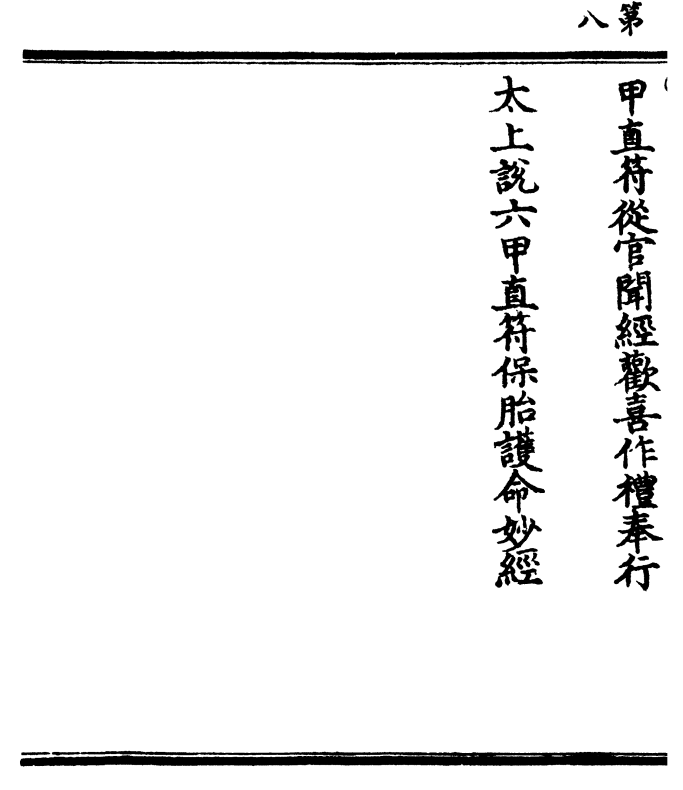 第八
甲直符從官聞經歡喜作禮奉行
太上說六甲直符保胎護命妙經